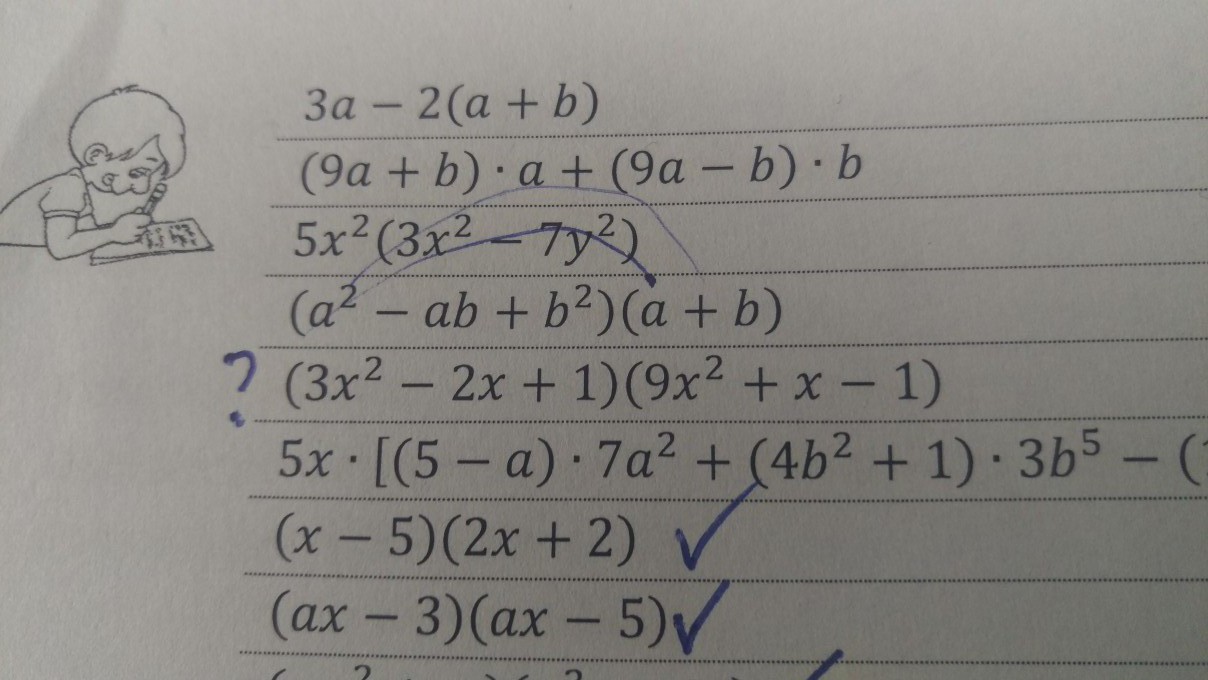 3a − 2(a + b)
(9a + b) · a + (9a − b) · b
5x²(3x² − 7y²)
(a² − ab + b²)(a + b)
? (3x² − 2x + 1)(9x² + x − 1)
5x · [(5 − a) · 7a² + (4b² + 1) · 3b⁵ − (
(x − 5)(2x + 2) ✓
(ax − 3)(ax − 5) ✓